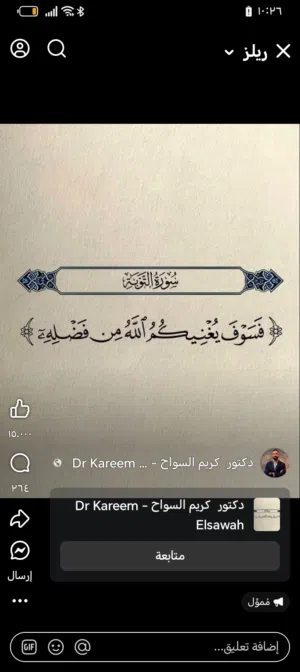 ١٠:٢٦
ريلز
سُورَةُ التَّوْبَة
فَسَوْفَ يُغْنِيكُمُ ٱللَّهُ مِن فَضْلِهِۦٓ
١٥,٠٠٠
دكتور كريم السواح - Dr Kareem ...
٢٦٤
دكتور كريم السواح - Dr Kareem Elsawah
متابعة
إرسال
مُموَّل
إضافة تعليق...
GIF